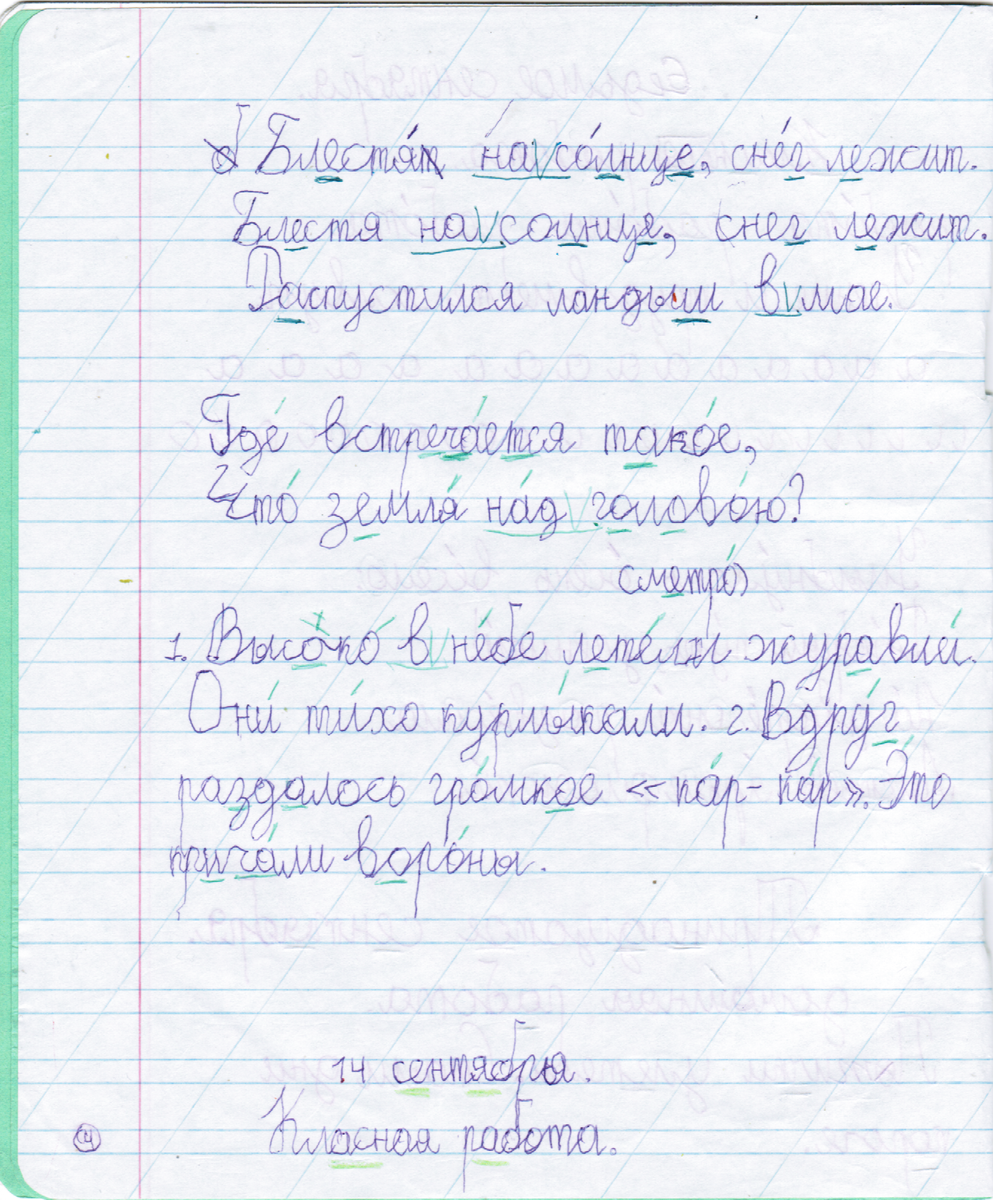 Блестят на солнце, снег лежит.
Блестя на солнце, снег лежит.
Распустился ландыш в мае.
Где встречается такое,
Что земля над головою?
(метро)
1. Высоко в небе летели журавли.
Они тихо курлыкали. 2. Вдруг
раздалось громкое «кар-кар». Это
кричали вороны.
14 сентября.
Класная работа.
4